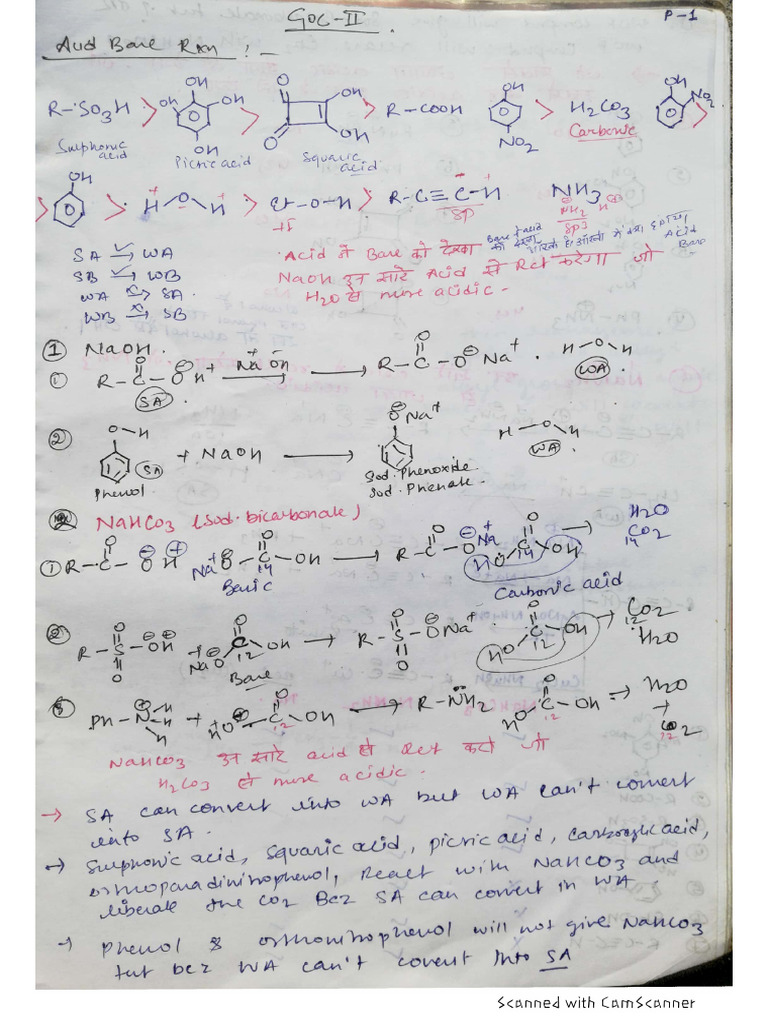 GOC-II.
P-1
Acid Base Rxn :-
R-SO3H > OH OH OH OH > O O OH OH > R-COOH OH NO2 > H2CO3 OH NO2 >
Sulphonic acid Picric acid Squaric acid Carbonic
> OH > H-O-H > Et-O-H > R-C≡C-H NH3
+I SP NH2 H SP3
SA → WA
SB → WB
WA → SA.
WB → SB
Acid में Base को देखा
NaOH उन सारे Acid से Rct करेगा जो
H2O से more acidic -
① NaOH.
① R-C-OH + NaOH → R-C-O Na+ . H-O-H
O SA . O WA
② O-H + NaOH → ONa+ H-O-H
SA WA
Phenol Sod. Phenoxide
Sod. Phenate.
② NaHCO3 (Sod. bicarbonate)
① R-C-O H + Na O-C-OH → R-C-O Na HO-C-OH → H2O CO2
14 Basic 14 Carbonic acid 14
② R-S-OH + NaO-C-OH → R-S-ONa+ HO-C-OH → CO2 H2O
12 Base 12 12
③ Ph-N-H + O-C-OH → R-NH2 HO-C-OH → H2O + CO2
12 12 12
NaHCO3 उन सारे acid से Rct करो जो
H2CO3 से more acidic -
→ SA can convert into WA but WA can't convert
into SA.
→ Sulphonic acid, Squaric acid, picric acid, Carboxylic acid,
orthoparadinitrophenol, React with NaHCO3 and
liberate the CO2 Bcz SA can convert in WA
→ Phenol & orthonitrophenol will not give NaHCO3
tut bcz WA can't covent into SA
Scanned with CamScanner